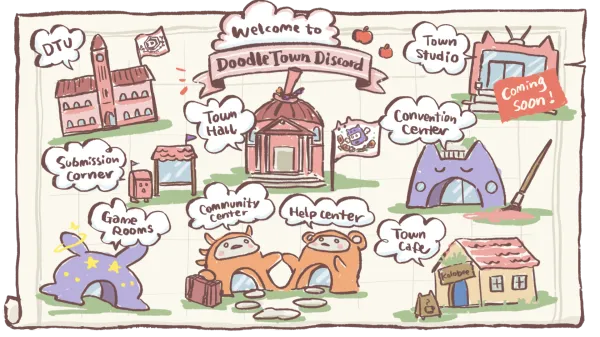 Welcome to
DoodleTown Discord
DTU
Town
Studio
Coming
soon!
Town
Hall
Convention
Center
Submission
Corner
Game
Rooms
Community
Center
Help Center
Town
Cafe